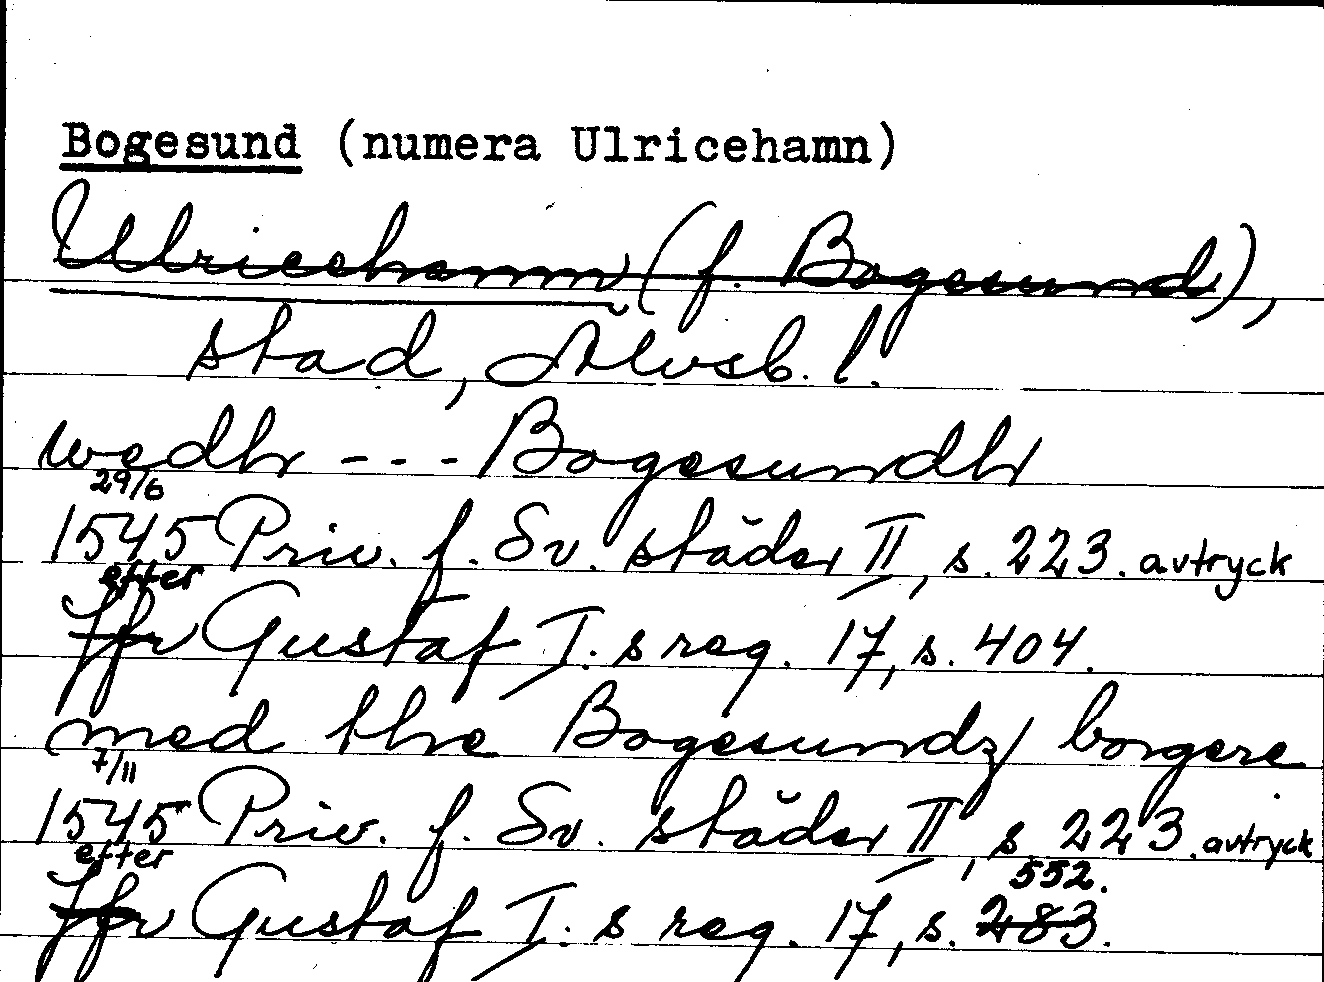 Bogesund (numera Ulricehamn)
Ulricehamn (f. Bogesund),
stad, Älvsb. l.
wedh --- Bogesundh
29/6
1545 Priv. f. Sv. städer II, s. 223. avtryck
efter
Jfr Gustaf I:s reg. 17, s. 404.
med the Bogesundz borgere
7/11
1545 Priv. f. Sv. städer II, s. 223. avtryck
efter 552.
Jfr Gustaf I:s reg. 17, s. 283.